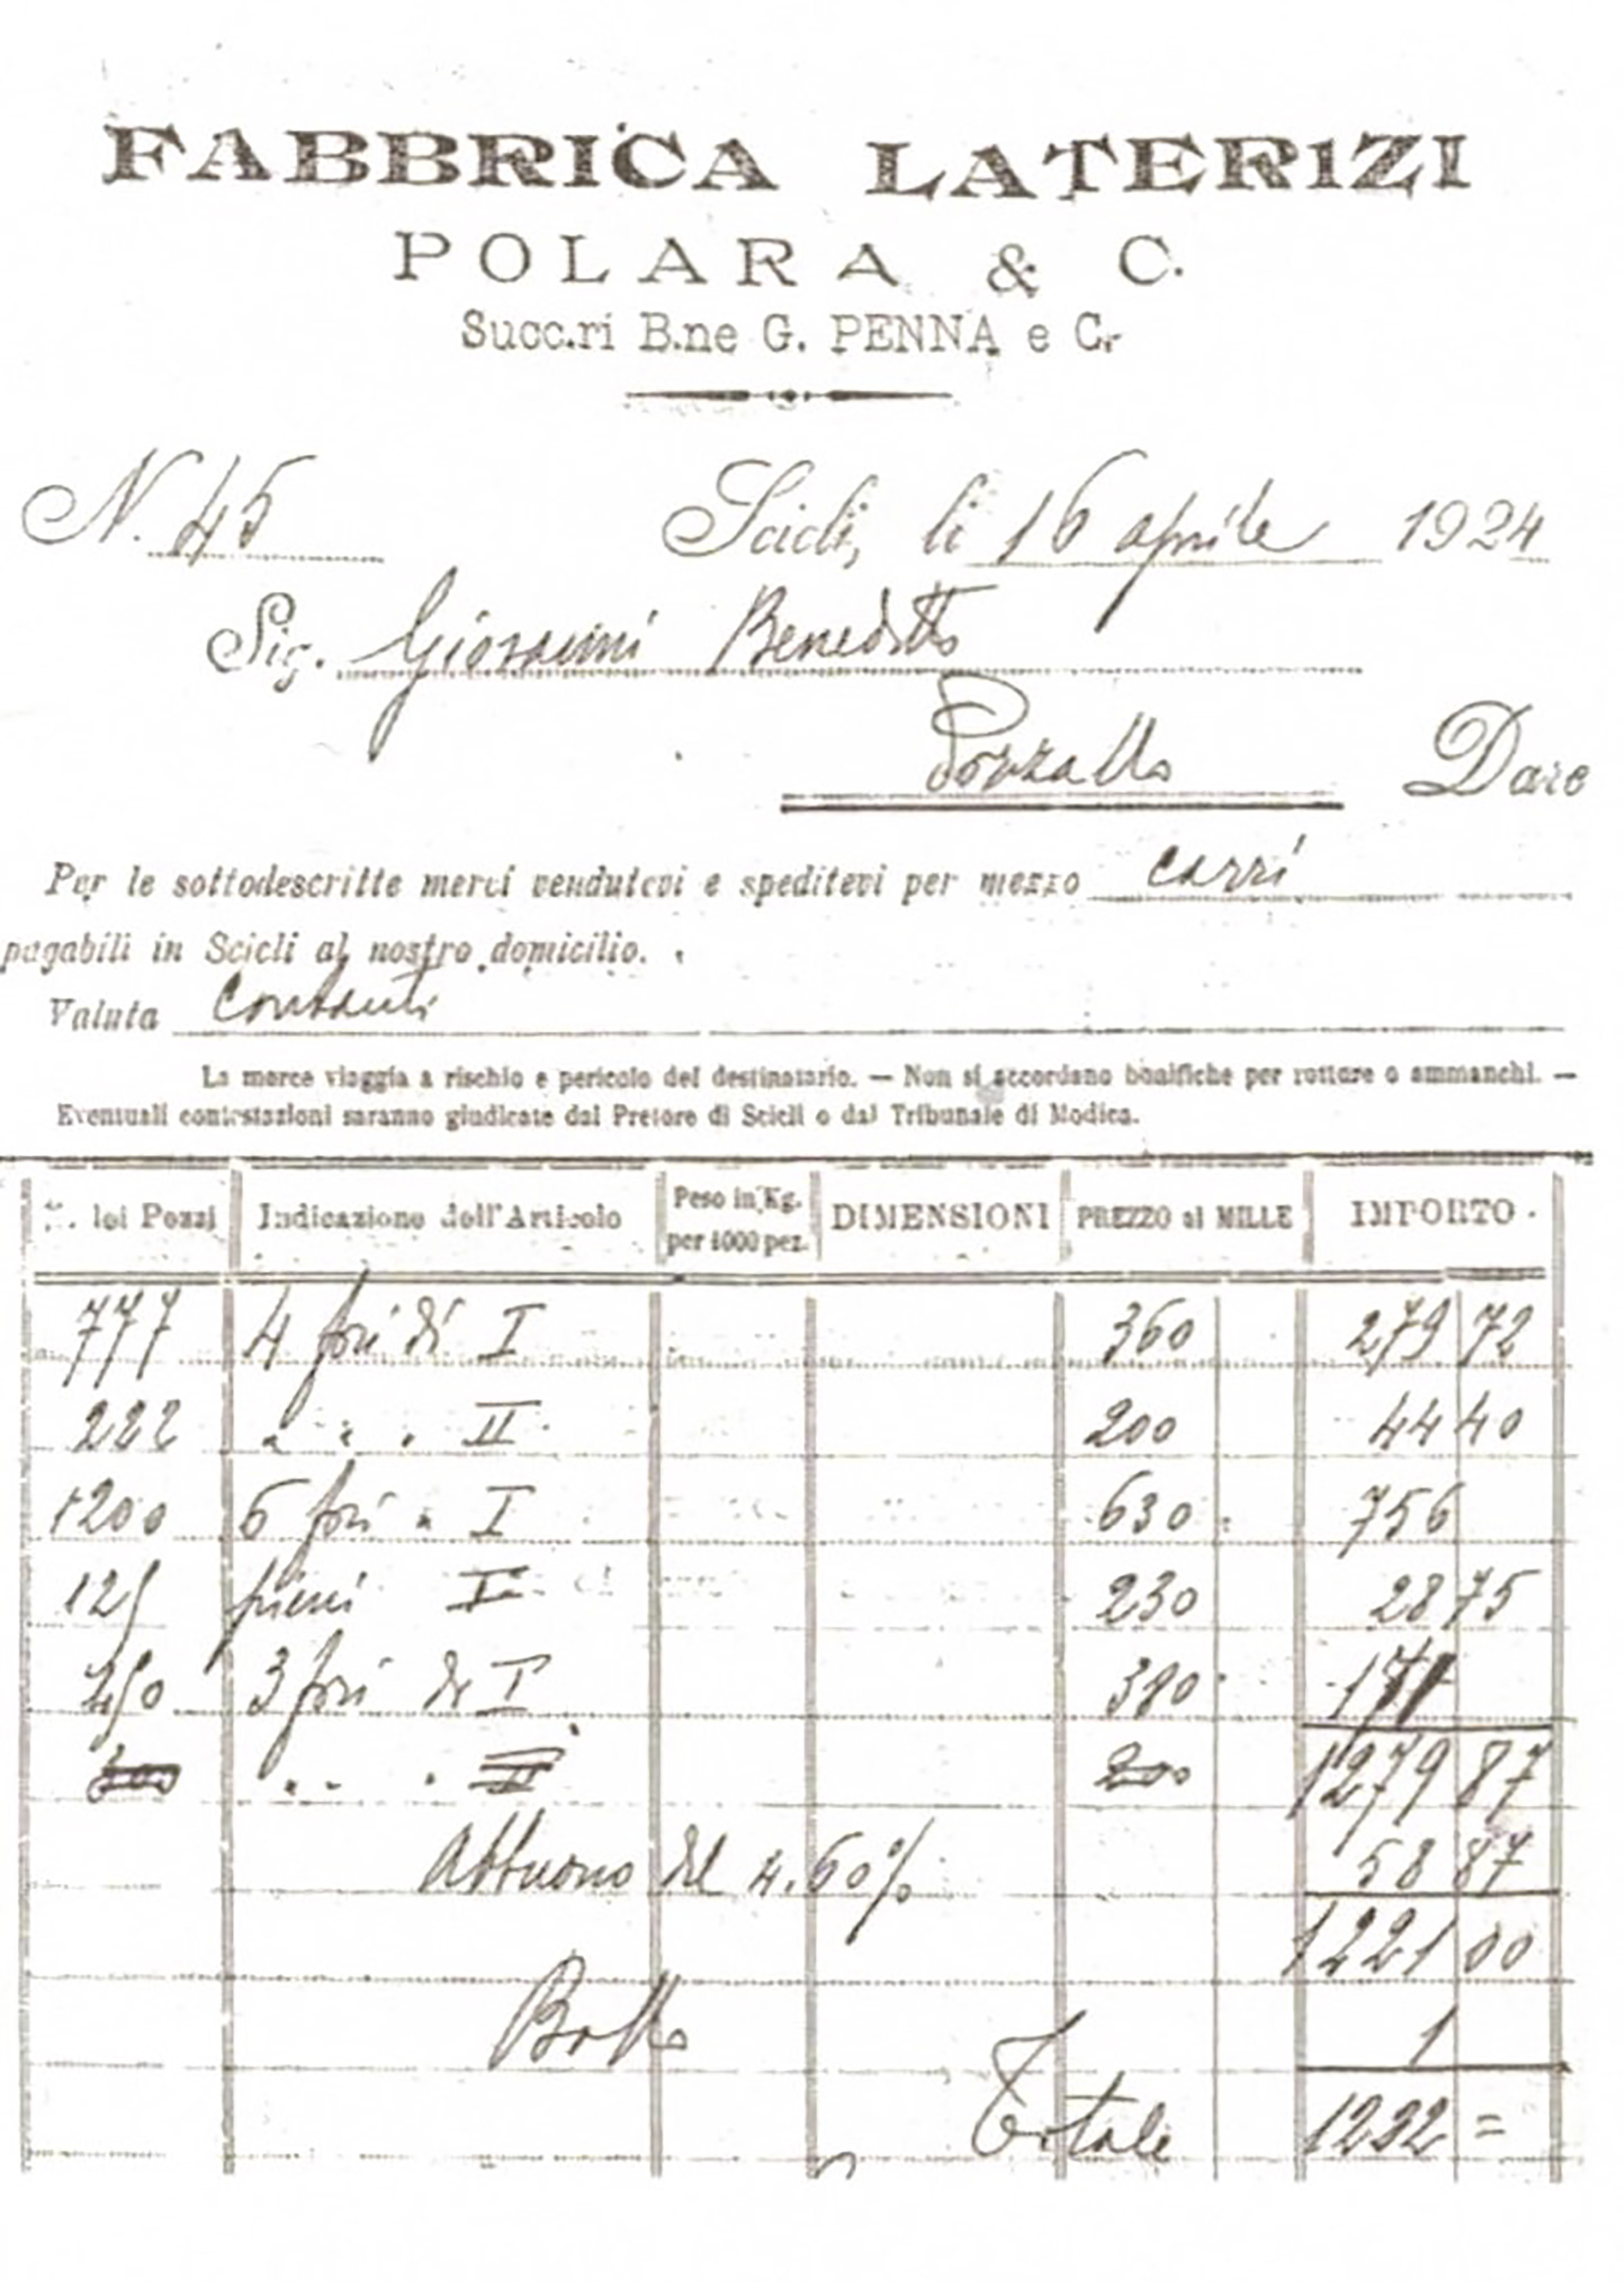 FABBRICA LATERIZI
POLARA & C.
Succ.ri B.ne G. PENNA e C.
N. 45 Scicli, li 16 aprile 1924
Sig. Giovanni Benedetto
Pozzallo Dare
Per le sottodescritte merci vendutevi e speditevi per mezzo carri
pagabili in Scicli al nostro domicilio.
Valuta Contanti
La merce viaggia a rischio e pericolo del destinatario. — Non si accordano bonifiche per rotture o ammanchi. —
Eventuali contestazioni saranno giudicate dal Pretore di Scicli o dal Tribunale di Modica.
N. dei Pezzi Indicazione dell'Articolo Peso in Kg. per 1000 pez. DIMENSIONI PREZZO al MILLE IMPORTO
777 4 fori di I 360 279 72
222 " " " II 200 44 40
1200 6 fori " I 630 756
125 pieni I 230 28 75
450 3 fori di I 380 171
200 " " " II 200 1279 87
Abbuono del 4.60% 58 87
1221 00
Bollo 1
Totale 1222 =